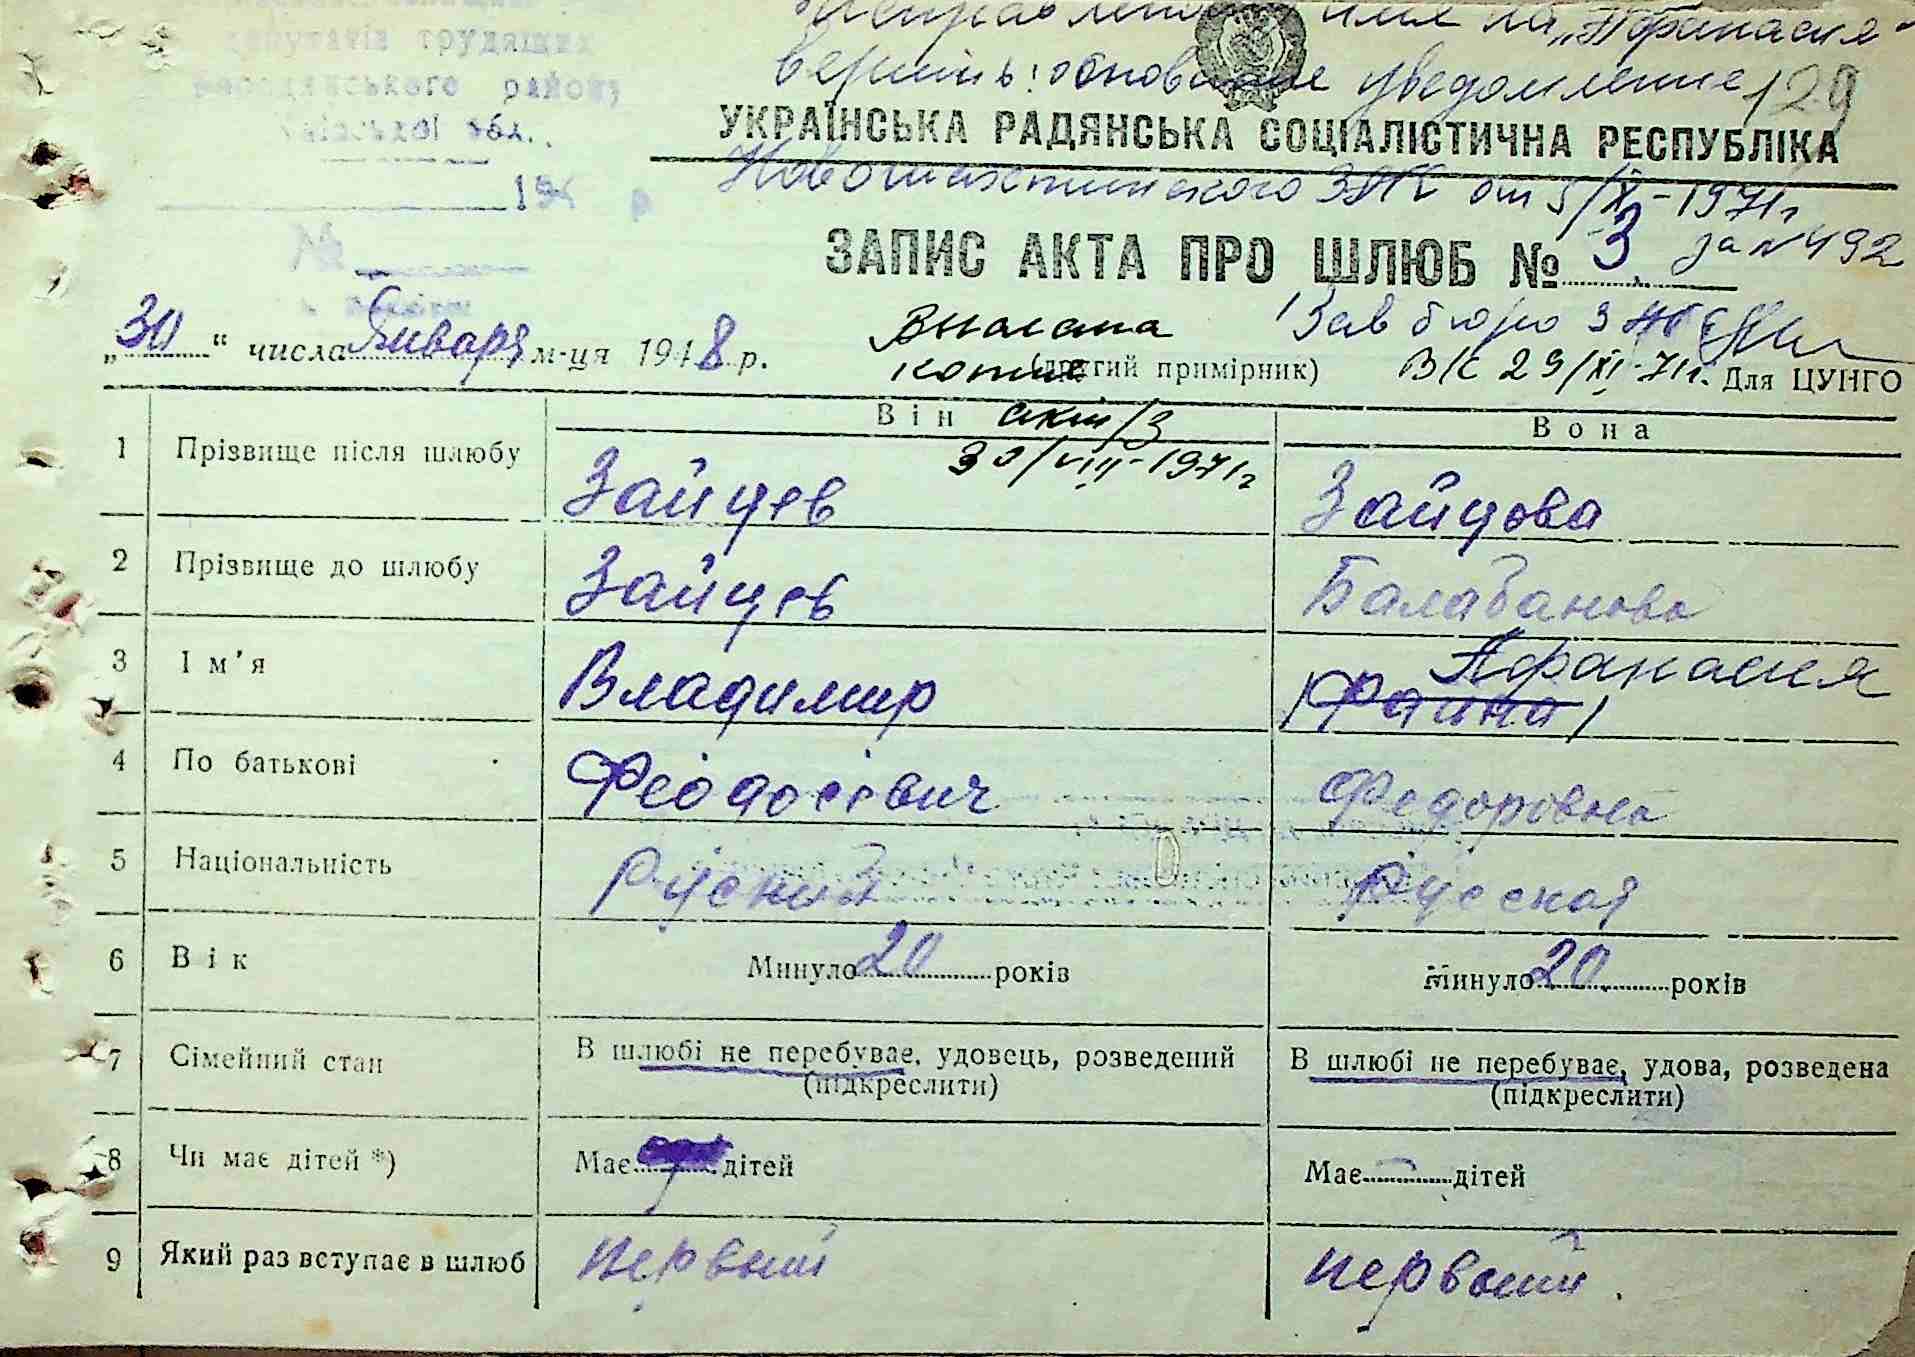 депутатів трудящих
Бородянського району
Київської обл.
194 р.
№
Исправлено имя на „Афанасия"
вернить: основание уведомление 129
УКРАЇНСЬКА РАДЯНСЬКА СОЦІАЛІСТИЧНА РЕСПУБЛІКА
Новошахтинского ЗАГС от 5/XI-1971г
ЗАПИС АКТА ПРО ШЛЮБ № 3 за №492
„30" числа Января м-ця 1948 р.
Выслана Зав бюро ЗАГС
копия (другий примірник) 29/XI-71г. Для ЦУНГО
Він акт/з Вона
30/VIII-1971г
1 Прізвище після шлюбу Зайцев Зайцова
2 Прізвище до шлюбу Зайцев Балабанова
Афанасия
3 Ім'я Владимир (Фаина)
4 По батькові Феодосевич Федоровна
5 Національність Руский Русская
6 Вік Минуло 20 років Минуло 20 років
7 Сімейний стан В шлюбі не перебуває, удовець, розведений В шлюбі не перебуває, удова, розведена
(підкреслити) (підкреслити)
8 Чи має дітей *) Має дітей Має — дітей
9 Який раз вступає в шлюб первый первый.